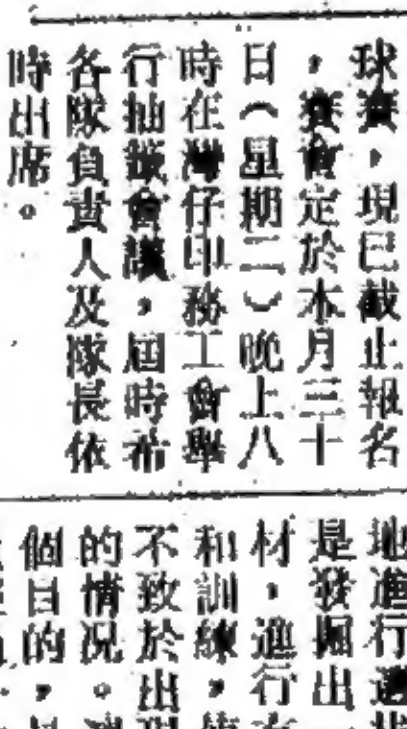 球賽，現已截止報名
，賽會定於本月三十
日（星期二）晚上八
時在灣仔印務工會舉
行抽籤會議，屆時希
各隊負責人及隊長依
時出席。
地進行選
是發掘出
材，進行
和訓練，
不致於出現
的情况。
個目的，